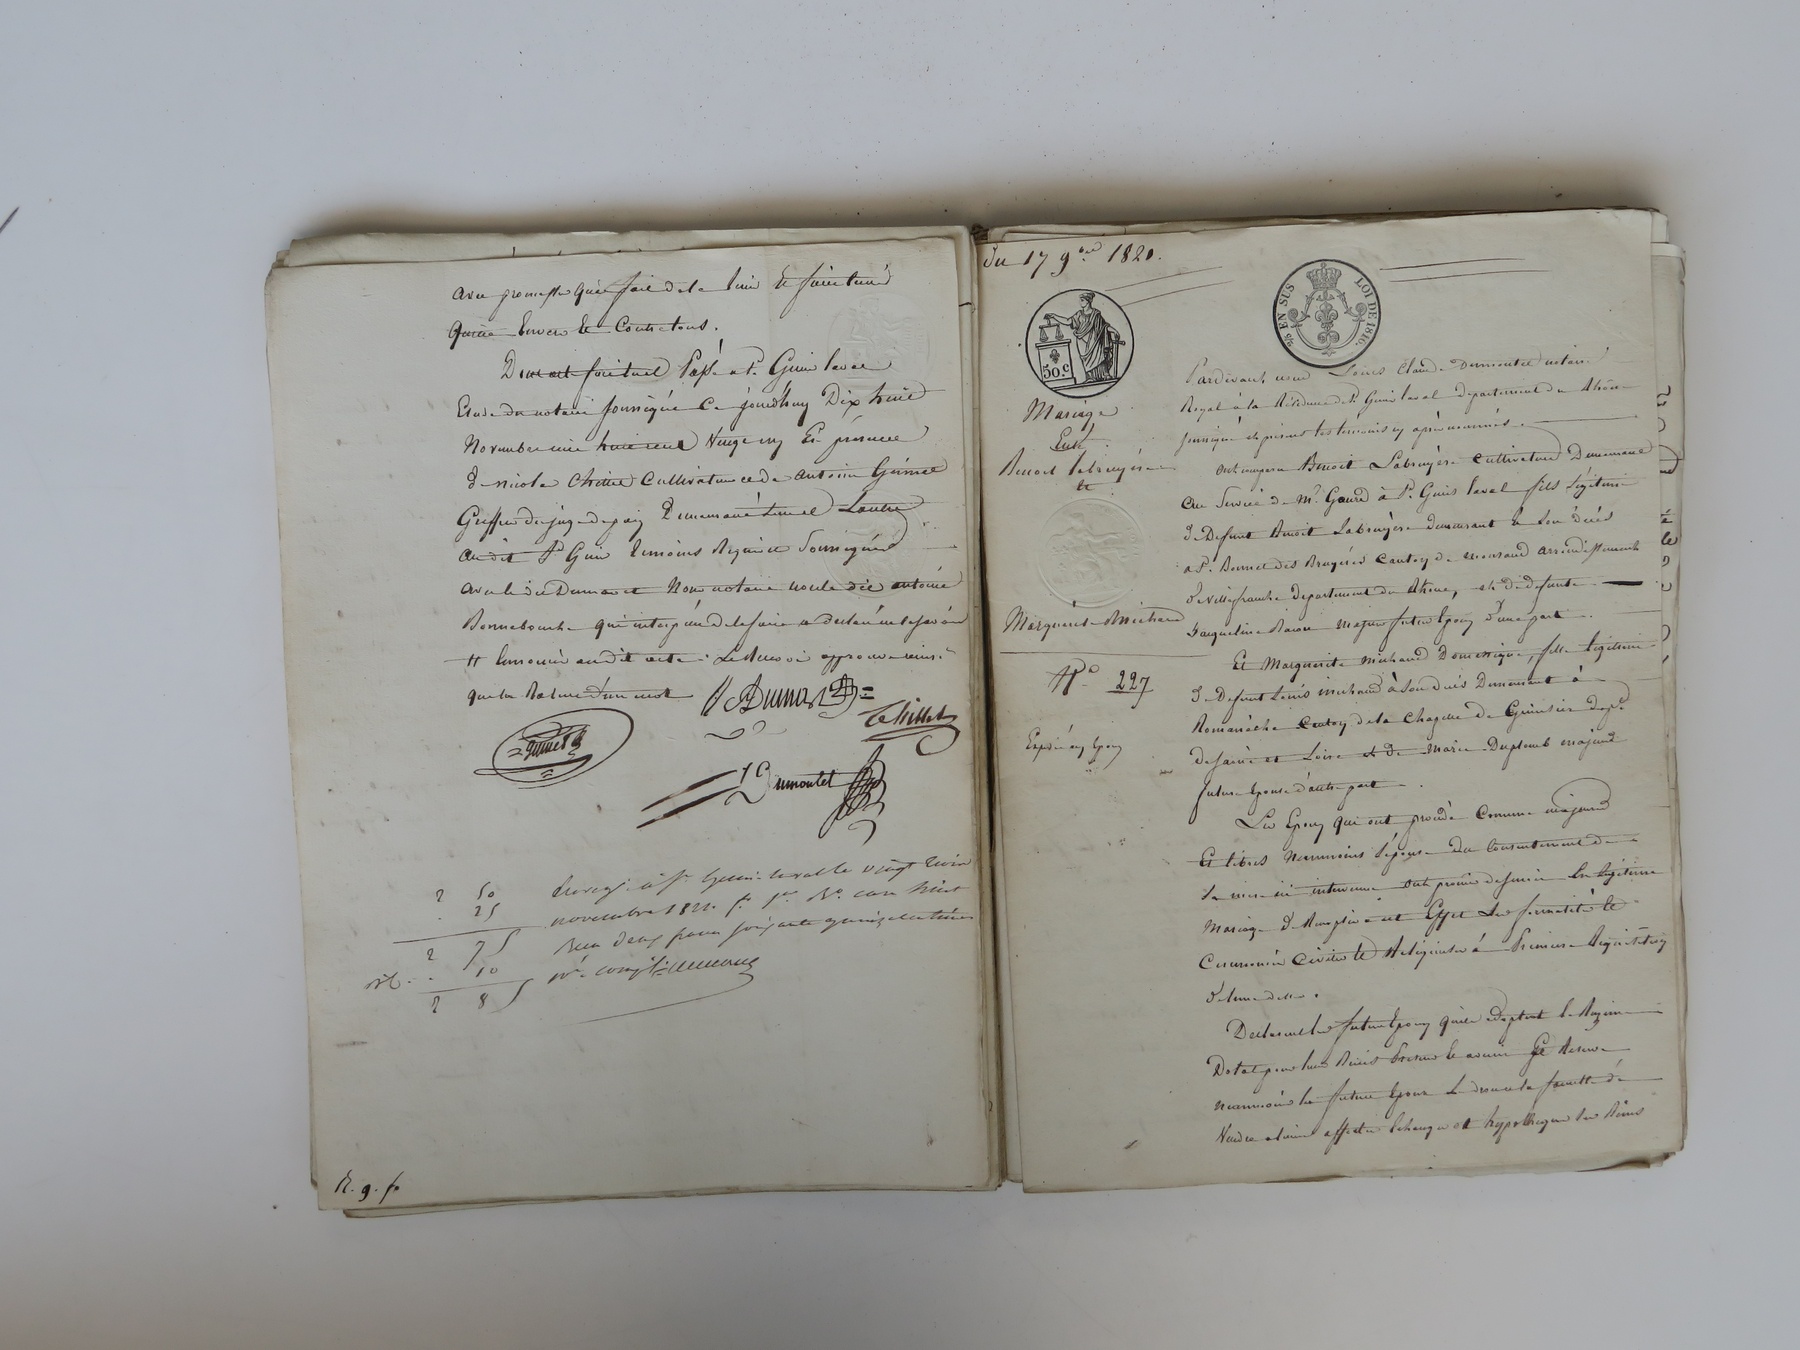 avec promesse
envers et contre tous.
Dont acte fait et Passé a St. Genis laval
Etude du notaire soussigné ce jourd'huy Dix huit
Novembre mil huit cent vingt un En présence
de nicolas Chillet Cultivateur et de antoine Guimet
Greffier du juge de paix Demeurant tous
au dit St. Genis temoins Requis et Soussignés
avec le dit Dumas et Nous notaire non le dit antoine
Bonnebouche qui interpellé de le faire a déclaré ne le savoir
que la Rature d'un mot
Dumas
Chillet
guimet
LC Dumontet
2 50
. 25
2 75
. 10
2 85
Enregé. à St. Genis-laval le vingt trois
novembre 1821. fo.
Reçu deux francs soixante quinze centimes
R. g. fo
du 17 9bre 1821.
EN SUS LOI DE 1816.
50.c
Mariage
Entre
Benoit labruyère
et
Marguerite Michaud
No. 227
Expédié aux Epoux
Pardevant nous Louis Claude Dumontet notaire
Royal à la Résidence de St. Genis laval département du Rhône
soussigné et présens les temoins cy après nommés.
ont comparu Benoit Labruyère cultivateur Demeurant
au Service de Mr. Gaurd à St. Genis laval fils légitime
de Defunt Benoit Labruyère demeurant à son décès
a St. Bonnet des Bruyères Canton de monsand arrondissement
de villefranche departement du Rhône, et de defunte
Jacqueline Baron majeur futur Epoux d'une part.
Et Marguerite michaud Domestique, fille légitime
de Defunt Louis michaud à Son décès Demeurant à
Romanèche Canton de la Chapelle de Guinchay dept.
de saone et Loire et de Marie Duplomb majeure
future Epouse d'autre part.
Les Epoux qui ont procédé comme majeurs
Et libres néanmoins l'épouse du Consentement de
Sa mère ici intervenue ont promis de s'unir En légitime
Mariage De Remplir à cet Effet Les formalités et
Ceremonies Civiles et Religieuses à Premiere Requisition
d'entre elles.
Declarent les futurs Epoux qu'ils adoptent le Regime
Dotal pour leurs Biens Presens et avenir Se Reserve
neanmoins la future Epouse Le droit et la faculté de
Vendre aliener affecter Echanger et hypothequer Les Biens